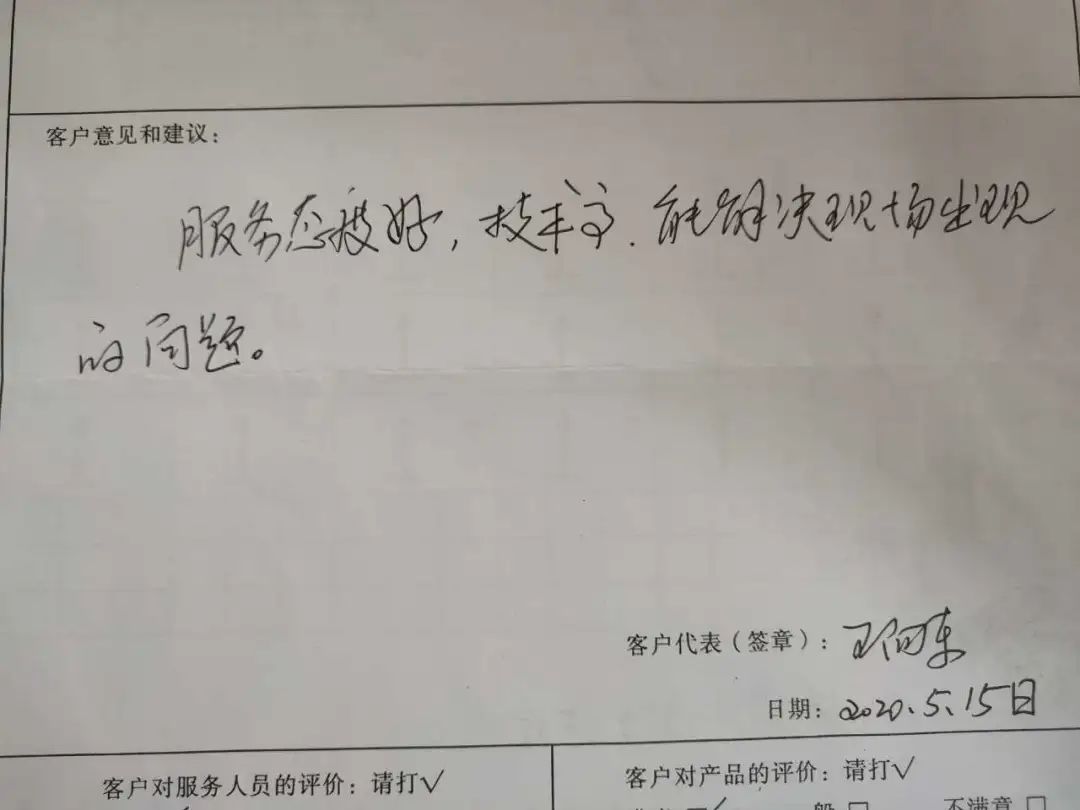 客户意见和建议：
服务态度好，技术高．能解决现场出现
的问题。
客户代表（签章）：王向东
日期：2020、5、15日
客户对服务人员的评价：请打√
客户对产品的评价：请打√
般□ 不满意□